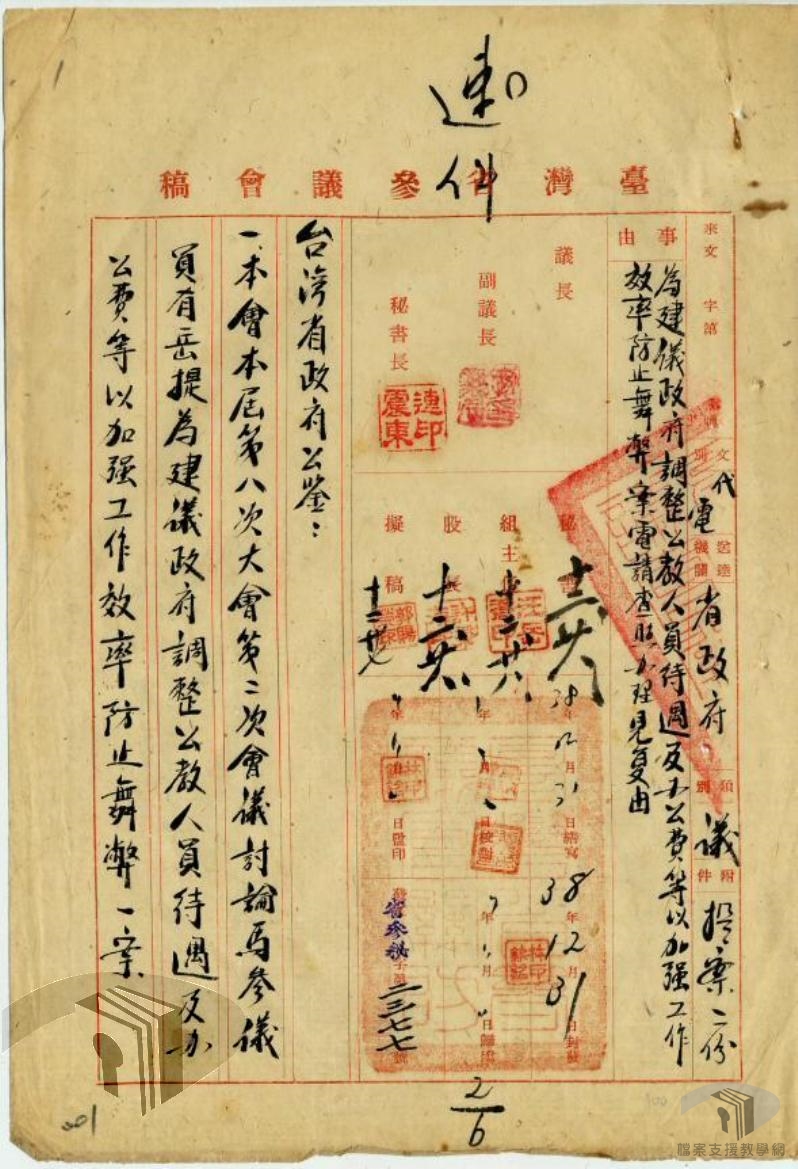 速件
臺灣省參議會稿
來文 字第
文別 代電
送達機關 省政府
類別 議
附件 提案一份
事由
為建議政府調整公教人員待遇及办公費等以加强工作
效率防止舞弊案電請查照办理見复由
議長
副議長
秘書長
連震東印
秘書
組主任
股長
擬稿
十二廿八
十二廿八
十二廿八
十二廿七
38年12月31日繕寫
年 月 日校對
年 月 日監印
38年12月31日封發
年 月 日歸檔
省參議字第二三七七號
台湾省政府公鉴：
一、本會本屆第八次大會第二次會議討論馬參議
員有岳提為建議政府調整公教人員待遇及办
公費等以加强工作效率防止舞弊一案
2/6
001
100
檔案支援教學網